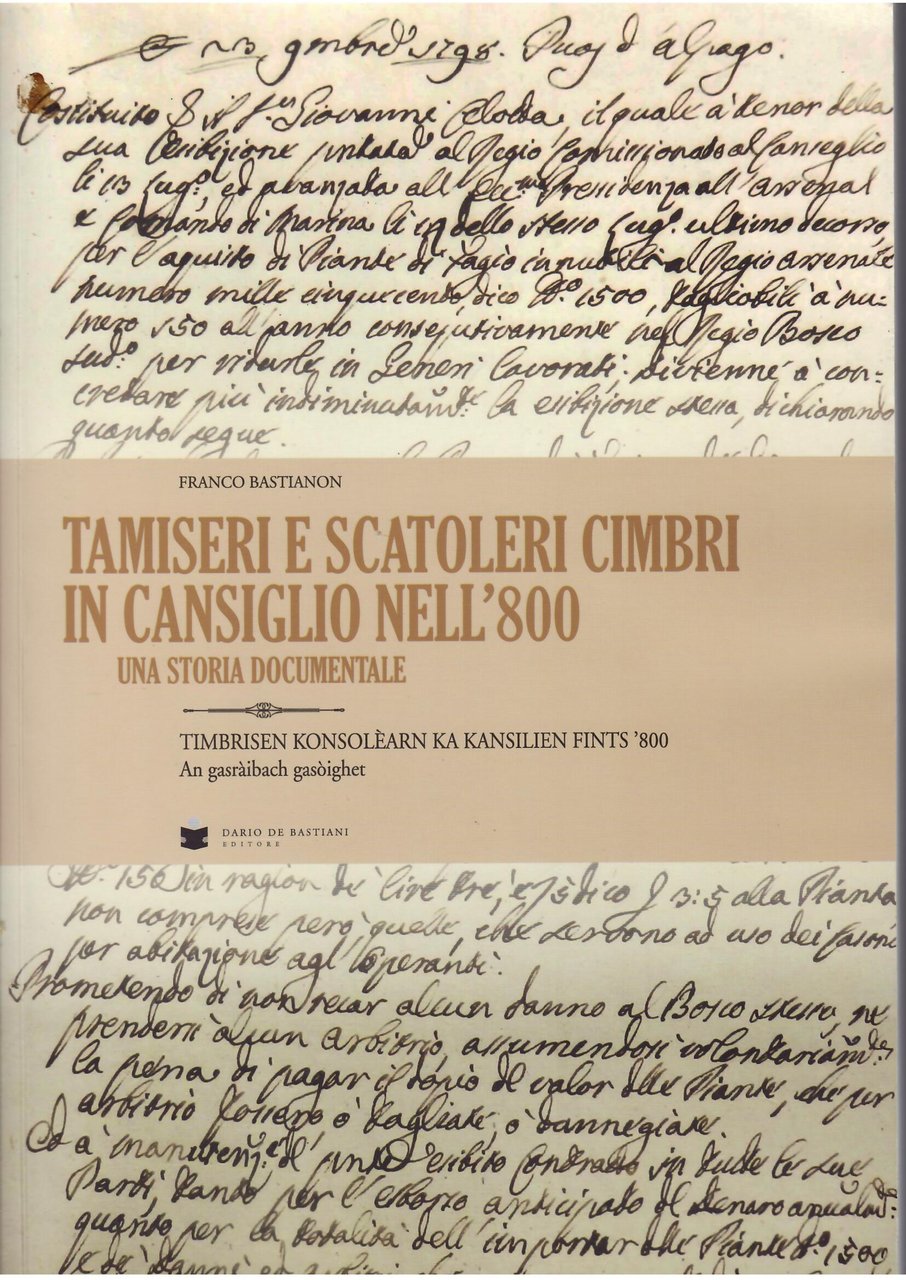 13, 9mbre 1798. Puos d'alpago.
Costituito Giovanni il quale à tenor della
sua esibizione al Regio Comissionato al Canseglio
li 13 Lugo, ed avanzata all' Presidenza all' arsenal
e Comando di Marina li 19 dello stesso Lugo ultimo decorso
per l'aquisto di Piante di fagio inutili al Regio arsenale
numero mille cinquecento, dico No 1500, tagliabili à nu=
mero 150 all'anno consegutivamente nel Regio Bosco
sudo per ridurle in Generi lavorati; divienne à con=
cretare più la esibizione stessa, dichiarando
quanto segue.
FRANCO BASTIANON
TAMISERI E SCATOLERI CIMBRI
IN CANSIGLIO NELL'800
UNA STORIA DOCUMENTALE
TIMBRISEN KONSOLÈARN KA KANSILIEN FINTS '800
An gasràibach gasòighet
DARIO DE BASTIANI
EDITORE
No 150 in ragion de lire tre, e dico 3:5 alla Pianta
non comprese però quelle, che servono ad uso dei Casoni
per abitazione agl'Operanti.
Prometendo di non recar alcun danno al Bosco stesso, ne
prendersi alcun arbitrio, assumendosi
la pena di pagar il dopio del valor delle Piante, che per
arbitrio fossero, ò tagliate, ò dannegiate.
Ed à esibito Contratto in tutte le sue
Parti, tanto per l'esborso anticipato del denaro
quanto per la totalità dell'importar delle Piante No 1500